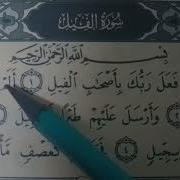 سُورَةُ الفِيلِ
بِسْمِ اللَّهِ الرَّحْمَٰنِ الرَّحِيمِ
فَعَلَ رَبُّكَ بِأَصْحَابِ الْفِيلِ ١ أَلَمْ
وَأَرْسَلَ عَلَيْهِمْ
سِجِّيلٍ ٤ كَعَصْفٍ